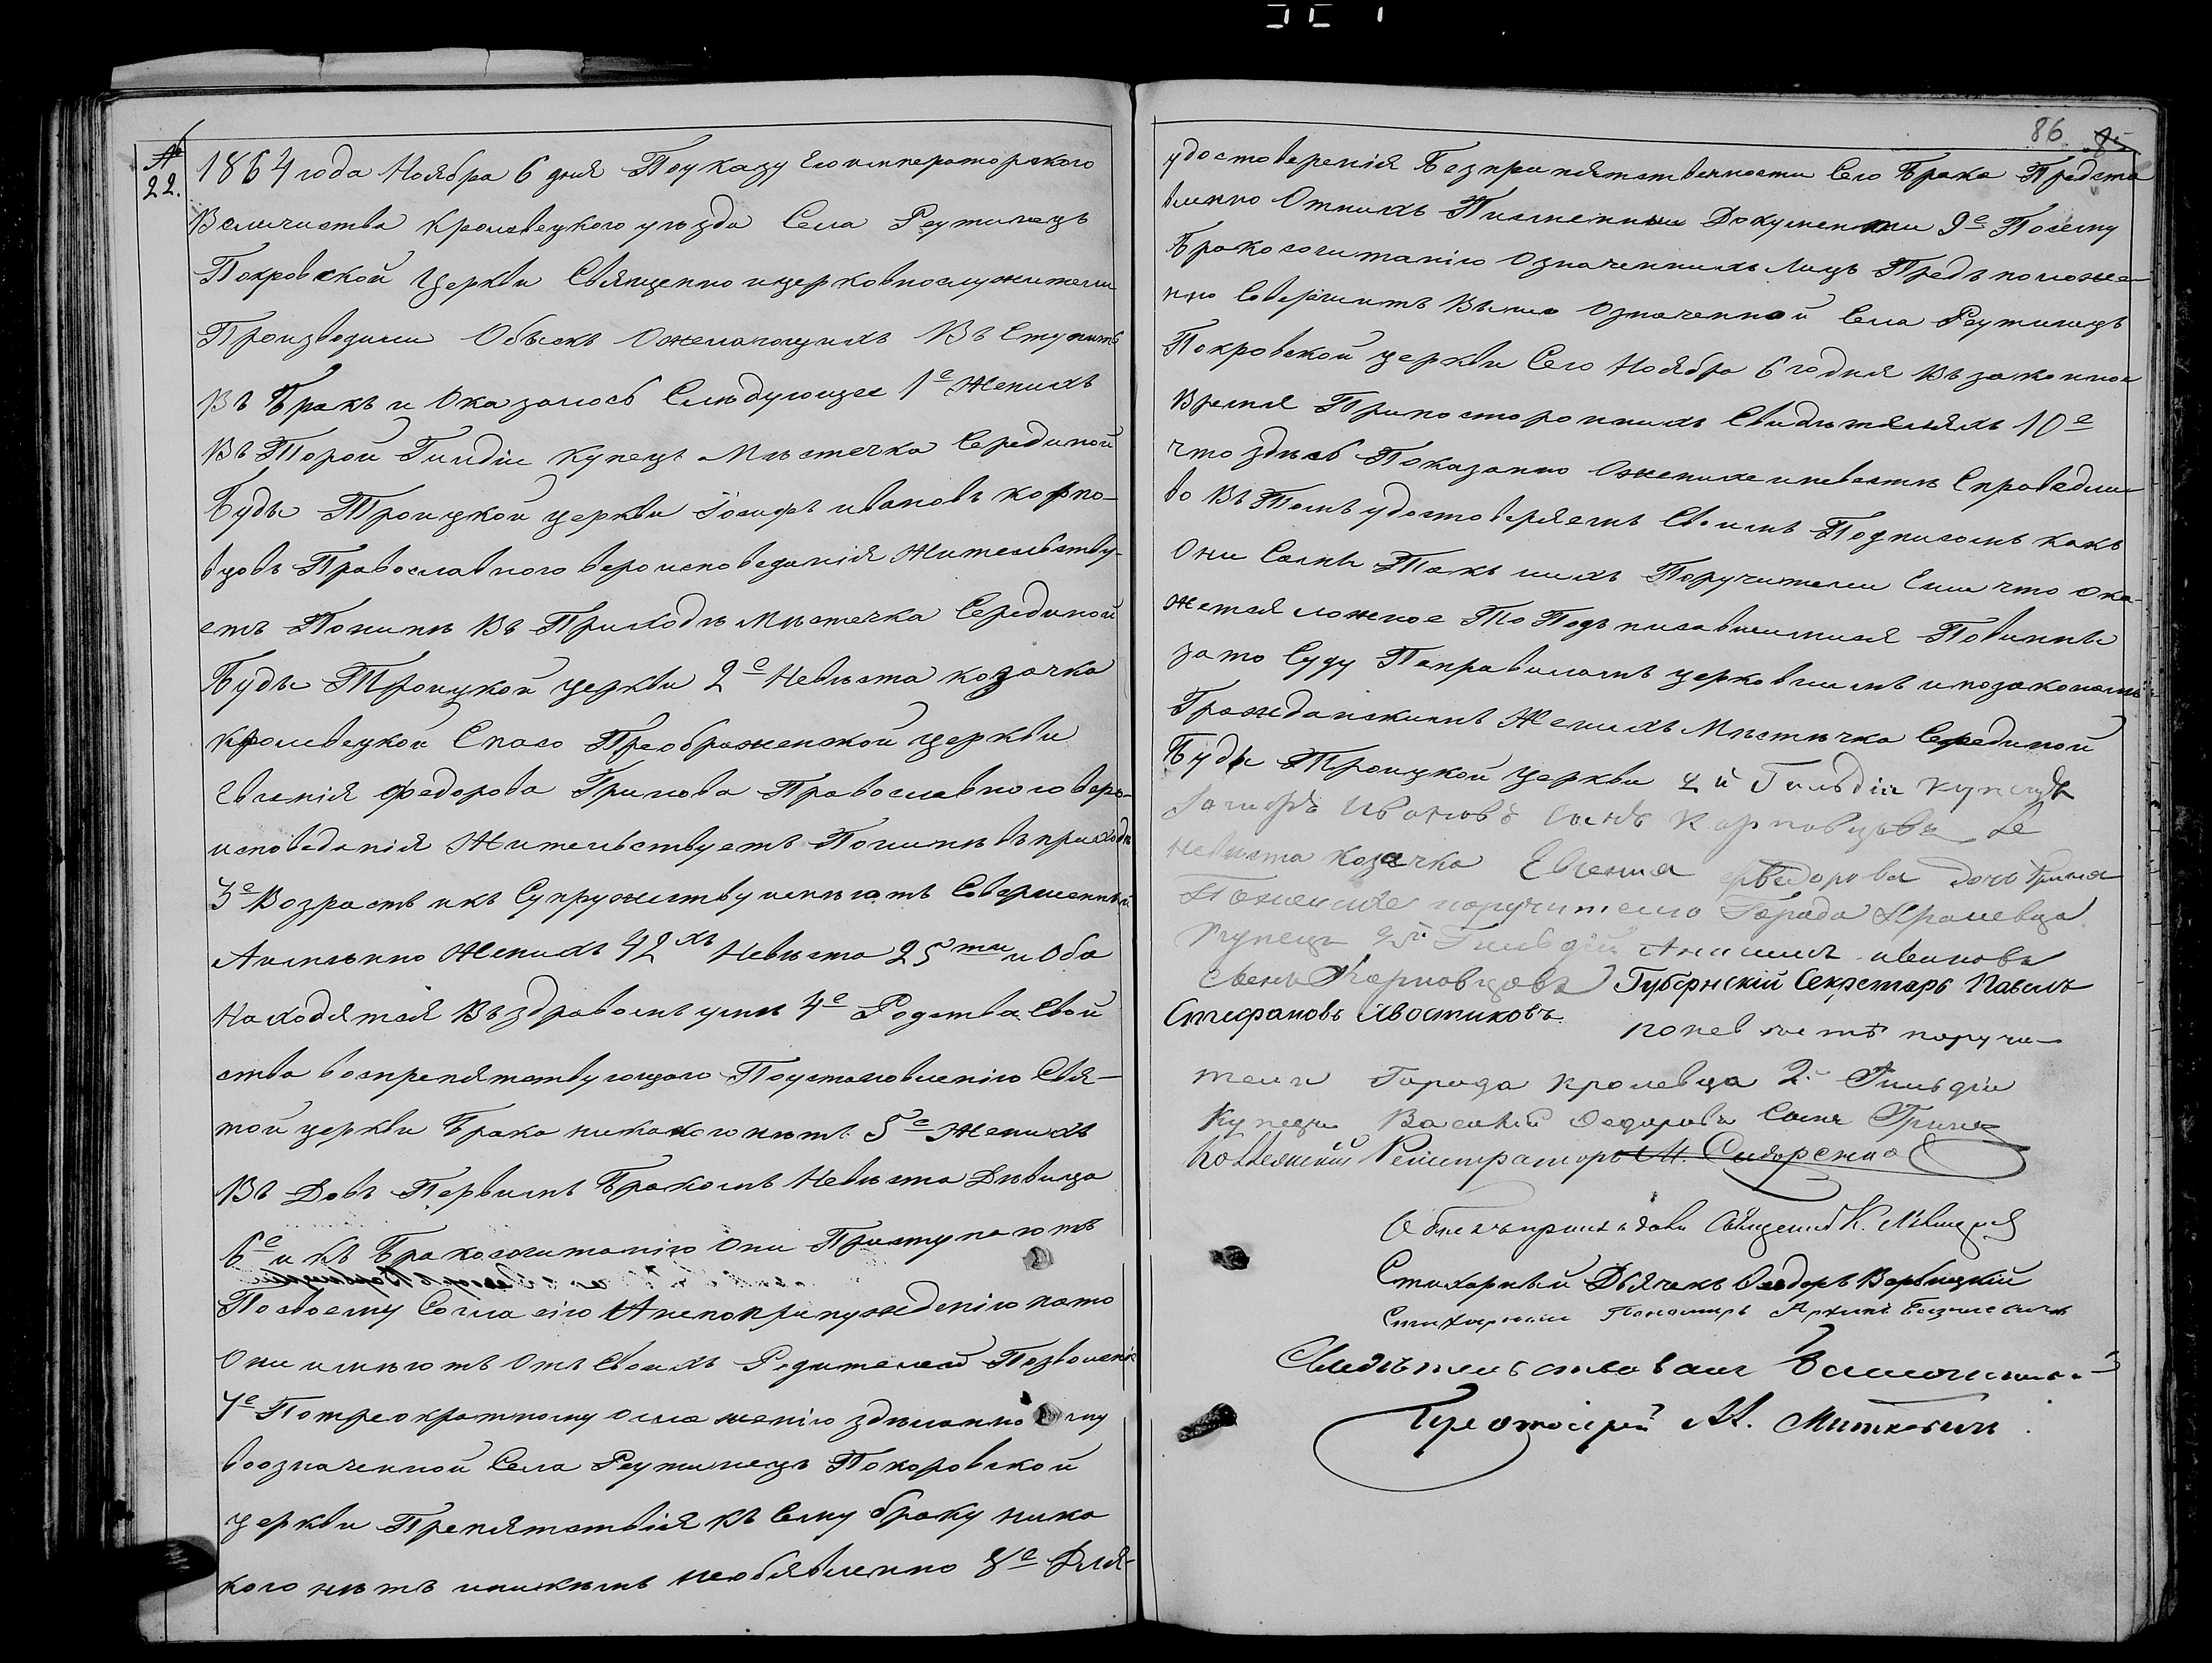 86
№ 22.
1864 года Ноября 6 дня Поуказу Его императорского
Величиства Кролевецкого уѣзда Села Реутинецъ
Покровской Церкви Священно ицерковнослужители
Производили Обыскъ Ожелающихъ Въ Ступить
Въ Бракъ и Оказалось Слѣдующее 1е Женихъ
Въ Торой Гилдіи Купецъ Мѣстечка Серединой
Буды Троицкой церкви Іосифъ ивановъ Карпо-
вцовъ Православного вероисповеданія Жительству-
етъ Понинѣ Въ Приходѣ Мѣстечка Серединой
Буды Троицкой церкви 2е Невѣста козачка
Кролевецкой Спасо Преображенской церкви
Евгенія Федорова Гринова Православного веро-
исповеданія Жительствуетъ Понинѣ въ приходѣ
3е Возрастъ икъ Супружеству имѣютъ Совершенный
Аименно Женихъ 42хъ Невѣста 25ти и Оба
Находятся Въ здравомъ умѣ 4е Родства Свой
ства воспрепятствующаго Поустановленію Свя-
той церкви Брака никакого нѣтъ 5е Женихъ
Въ Довъ Первымъ Бракомъ Невѣста Дѣвица
6е и къ Бракосочитанію они Приступаютъ
Посвоему Согласію Анепопринужденію нато
Они имѣютъ Отъ Своихъ Родителей Позволеніе
7е Потреократному огла шенію здѣланно
воозначенной Села Реутинецъ Покоровской
церкви Препятствія къ Сему браку ника
кого нѣтъ иникѣмъ необявленно 8е Для
удостоверенія Безпрепятственности Сего Брака Предста
вленно Отнихъ Писменныи Документи 9е Посему
Бракосочитанію Означеннихъ Лицъ Предъ положе-
нно Совершить Выше Означенной Села Реутинецъ
Покровской церкви Сего Ноября 6 годня Въ законное
Время Припостороннихъ Свидѣтеляхъ 10е
что здѣсь Показанно Ожениха иневестѣ Справедли
во Въ Томъ удостоверяемъ Своимъ Подписомъ какъ
Они Самы Такъ иихъ Поручители Если что ока-
жется ложное То Подъ писавшиися Повинны
зато Суду Поправиламъ церковнимъ ипозаконамъ
Гражданскимъ Женихъ Мѣстѣчка Серединой
Буды Троицкой Церкви 2й Гильдіи Купецъ
Іосифъ Ивановъ Сынъ Карповцовъ
Невѣста козачка Евгения Федорова дочь Грина
Поженихе поручителю Города Кролевца
Купецъ 2й Гильдіи Анисимъ иванова
Сынъ Карповцовъ Губернскій Секретарь Павелъ
Стефановъ Хвостиковъ. поневѣсте поручи-
тели Города Кролевца 2й Гильдіи
Купецъ Василій Федоровъ Сынъ Гринъ
Коллежскій Регистраторъ М. Сидоренко
Обыскъ Священник К.
Стихарный Дьячекъ Ѳеодоръ Вербицкій
Стихарный Пономарь
Свидѣтельствовалъ Благочинный
Протоіерей А. Миткевичъ.